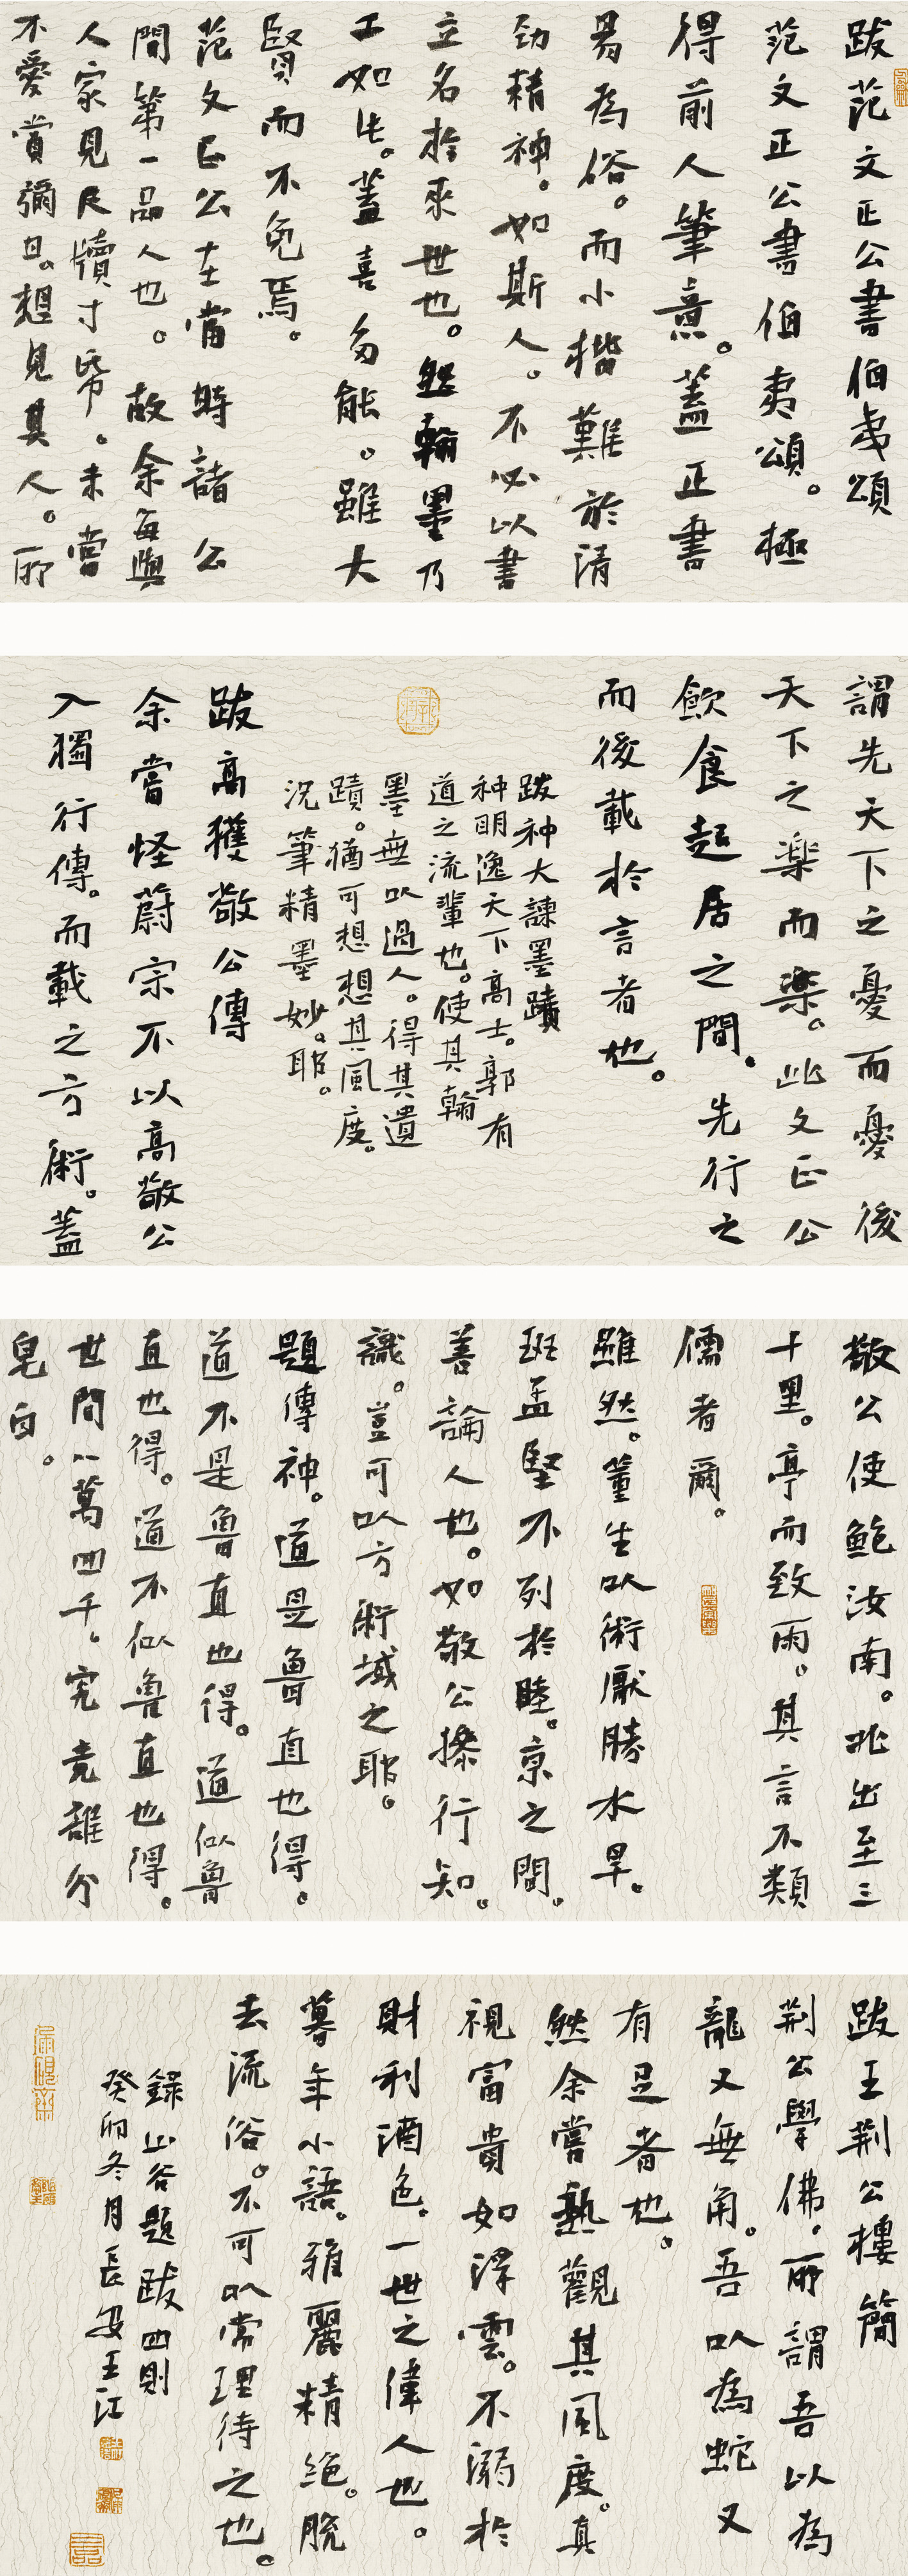 跋范文正公書伯夷頌
范文正公書伯夷頌。極
得前人筆意。蓋正書
易為俗。而小楷難於清
勁精神。如斯人。不必以書
立名於來世也。然翰墨乃
工如此。蓋喜多能。雖大
賢而不免焉。
范文正公在當時諸公
間第一品人也。故余每與
人家見尺牘寸帋。未嘗
不愛賞彌日。想見其人。所
謂先天下之憂而憂後
天下之樂而樂。此文正公
飲食起居之間。先行之
而後載於言者也。
跋种大諫墨蹟
种明逸天下高士。郭有
道之流輩也。使其翰
墨無以過人。得其遺
蹟。猶可想想其風度。
況筆精墨妙。耶。
跋高獲敬公傳
余嘗怪蔚宗不以高敬公
入獨行傳。而載之方術。蓋
敬公使鮑汝南。北出至三
十里。亭而致雨。其言不類
儒者爾。
雖然。董生以術厭勝水旱。
班孟堅不列於眭。京之間。
善論人也。如敬公操行知。
識。豈可以方術域之耶。
題傳神。道是魯直也得。
道不是魯直也得。道似魯
直也得。道不似魯直也得。
世間八萬四千。究竟誰分
皂白。
跋王荆公樓簡
荆公學佛。所謂吾以為
龍又無角。吾以為蛇又
有足者也。
然余嘗熟觀其風度。真
視富貴如浮雲。不溺於
財利酒色。一世之偉人也。
暮年小語。雅麗精絕。脫
去流俗。不可以常理待之也。
錄山谷題跋四則
癸卯冬月長安王江